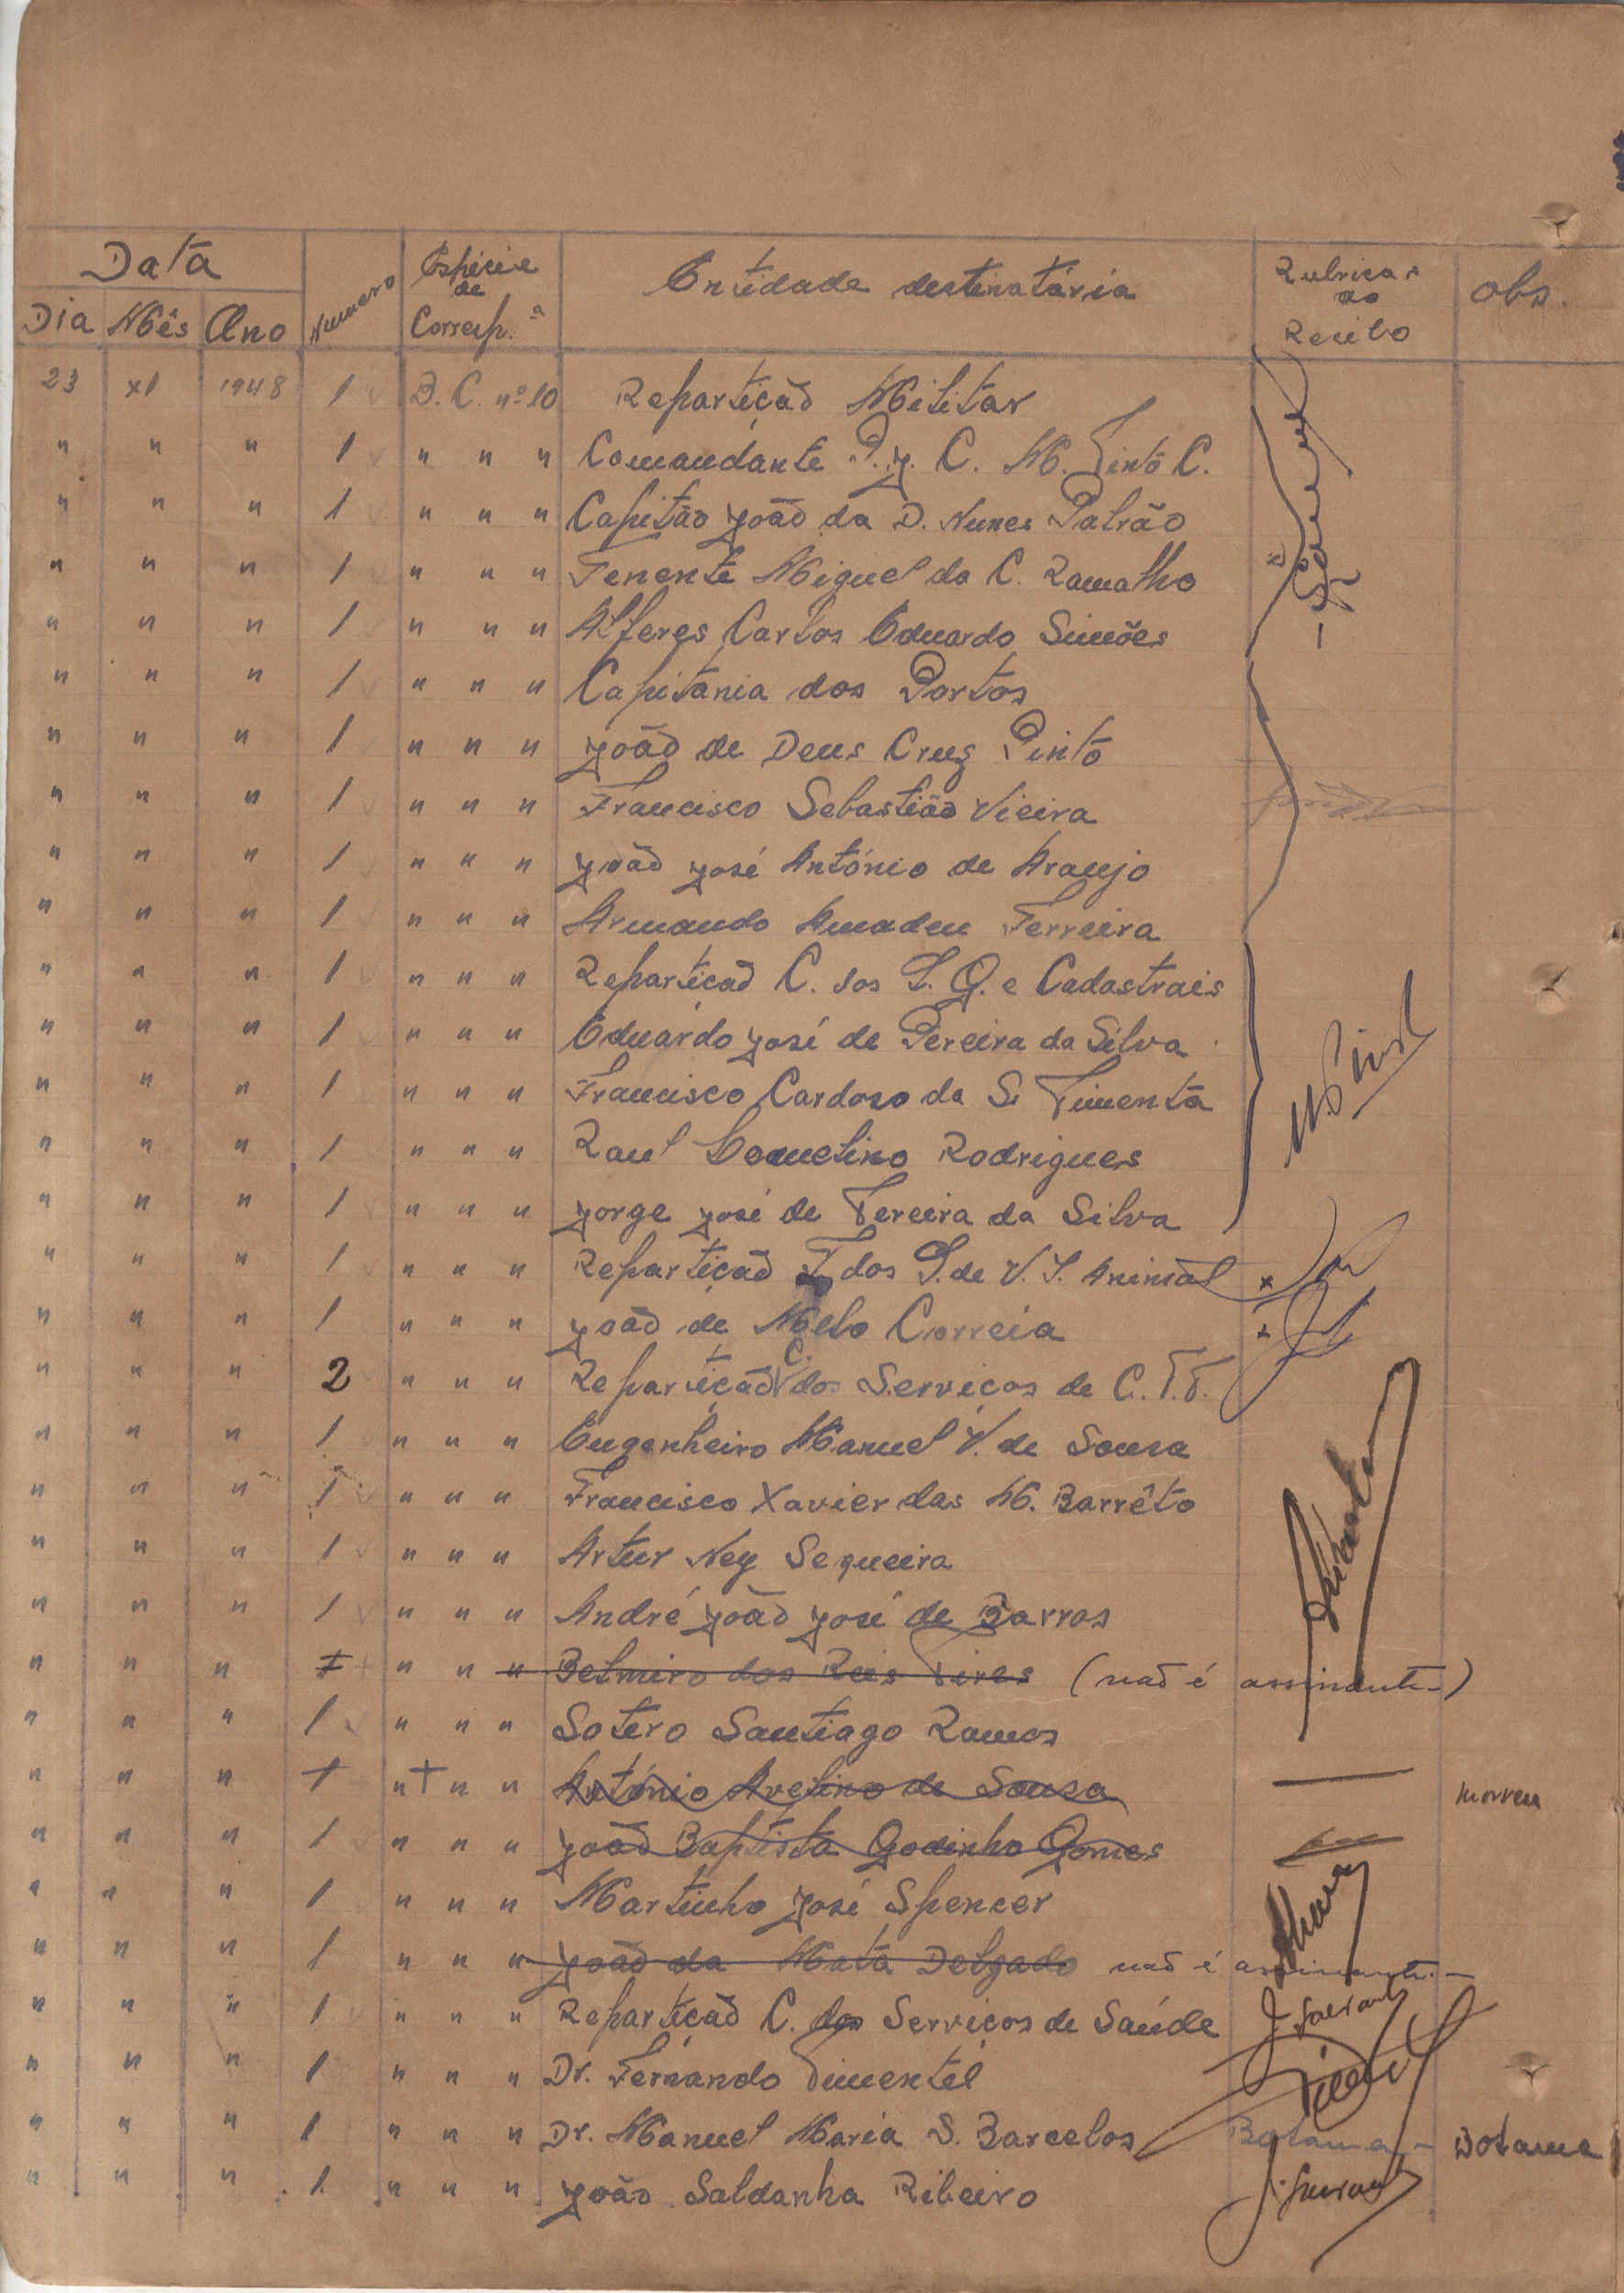 Data
Numero
Espécie
de
Corresp.ª
Entidade destinatária
Rubricas
ao
Recibo
Obs.
Dia Mês Ano
23 XI 1948 1 B. C. nº 10 Repartição Militar
" " " 1 " " " Comandante P. J. C. M. Pinto C.
" " " 1 " " " Capitão João da D. Nunes Patrão
" " " 1 " " " Tenente Miguel da C. Ramalho
" " " 1 " " " Alferes Carlos Eduardo Simões
" " " 1 " " " Capitania dos Portos
" " " 1 " " " João de Deus Cruz Pinto
" " " 1 " " " Francisco Sebastião Vieira
" " " 1 " " " João José António de Araujo
" " " 1 " " " Armando Amadeu Ferreira
" " " 1 " " " Repartição C. dos S. G. e Cadastrais
" " " 1 " " " Eduardo José de Pereira da Silva
" " " 1 " " " Francisco Cardoso da S. Pimenta
" " " 1 " " " Raul Rodrigues
" " " 1 " " " Jorge José de Pereira da Silva
" " " 1 " " " Repartição T. dos S. de V. I. Animal
" " " 1 " " " João de Melo Correia
" " " 2 " " " Repartição C. dos Serviços de C. T. T.
" " " 1 " " " Engenheiro Manuel V. de Sousa
" " " 1 " " " Francisco Xavier das M. Barrêto
" " " 1 " " " Artur Ney Sequeira
" " " 1 " " " André João José de Barros
" " " 1 " " " Belmiro dos Reis Pires (não é assinante)
" " " 1 " " " Sotero Santiago Ramos
" " " 1 " " " António Avelino de Sousa morreu
" " " 1 " " " João Baptista Godinho Gomes
" " " 1 " " " Martinho José Spencer
" " " 1 " " " João da Mata Delgado não é assinante.
" " " 1 " " " Repartição C. dos Serviços de Saúde
" " " 1 " " " Dr. Fernando Pimentel
" " " 1 " " " Dr. Manuel Maria S. Barcelos Bolama - Bolama
" " " 1 " " " João Saldanha Ribeiro